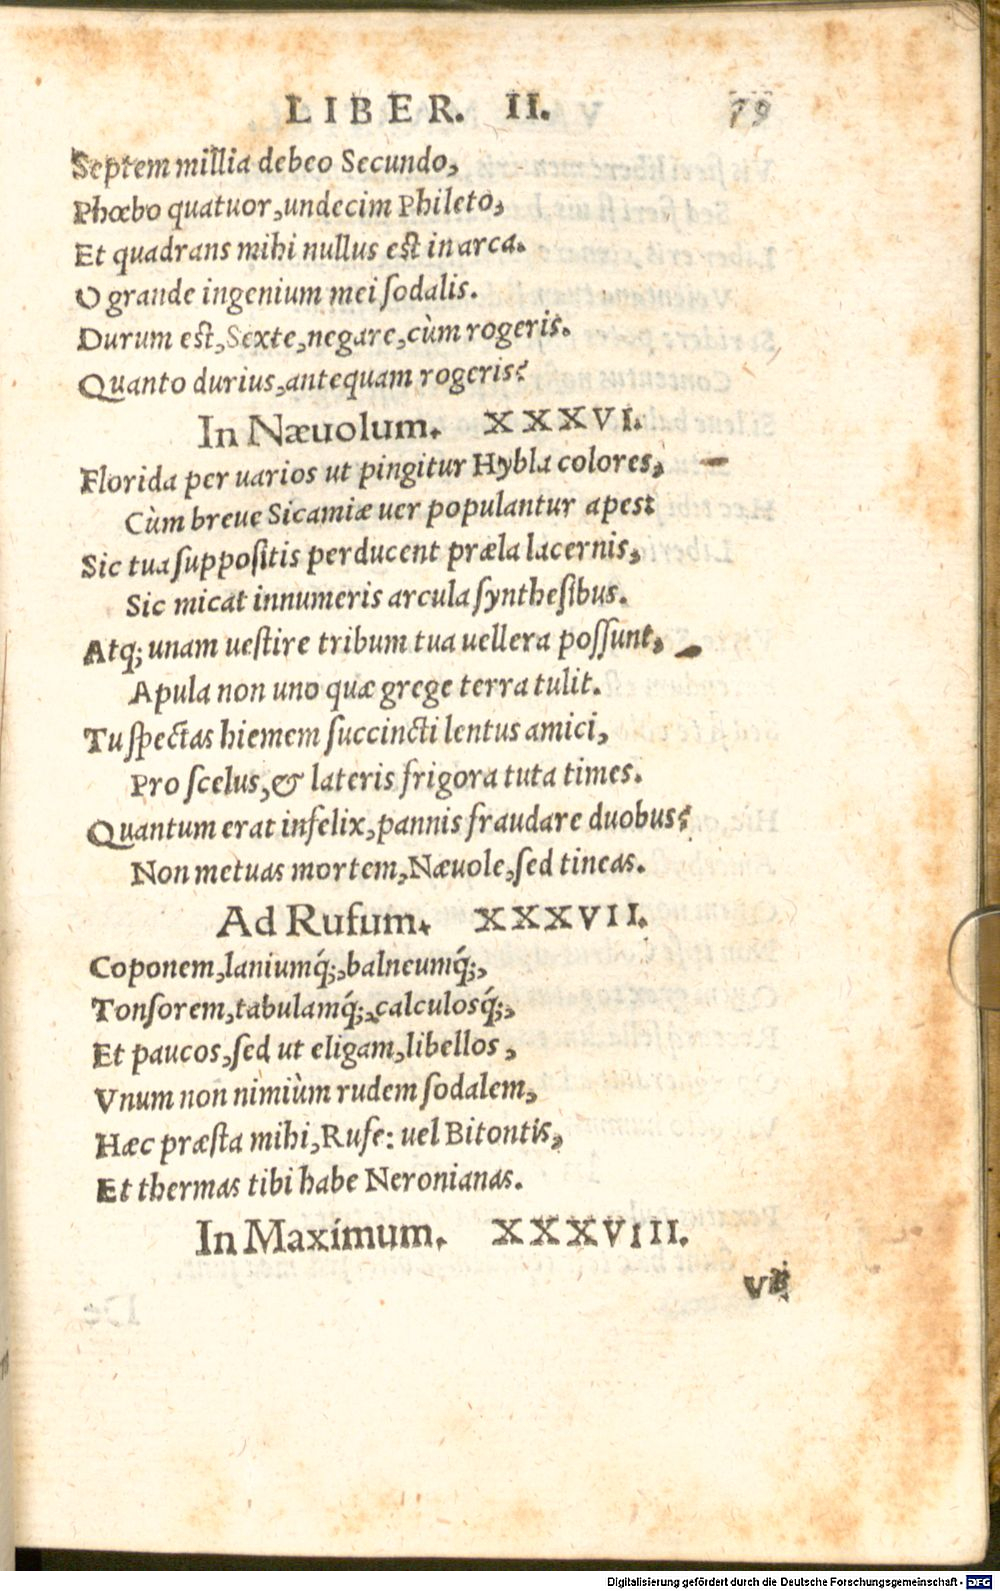 LIBER. II. 79
Septem millia debeo Secundo,
Phœbo quatuor, undecim Phileto,
Et quadrans mihi nullus est in arca.
O grande ingenium mei sodalis.
Durum est, Sexte, negare, cùm rogeris.
Quanto durius, antequam rogeris?
In Næuolum. XXXVI.
Florida per uarios ut pingitur Hybla colores,
Cùm breue Sicamiæ uer populantur apes:
Sic tua suppositis perducent præla lacernis,
Sic micat innumeris arcula synthesibus.
Atq; unam uestire tribum tua uellera possunt,
Apula non uno quæ grege terra tulit.
Tu spectas hiemem succincti lentus amici,
Pro scelus, & lateris frigora tuta times.
Quantum erat infelix, pannis fraudare duobus?
Non metuas mortem, Næuole, sed tineas.
Ad Rufum. XXXVII.
Coponem, laniumq́;, balneumq́;,
Tonsorem, tabulamq́;, calculosq́;,
Et paucos, sed ut eligam, libellos,
Vnum non nimiùm rudem sodalem,
Hæc præsta mihi, Rufe: uel Bitontis,
Et thermas tibi habe Neronianas.
In Maximum. XXXVIII.
Digitalisierung gefördert durch die Deutsche Forschungsgemeinschaft - DFG